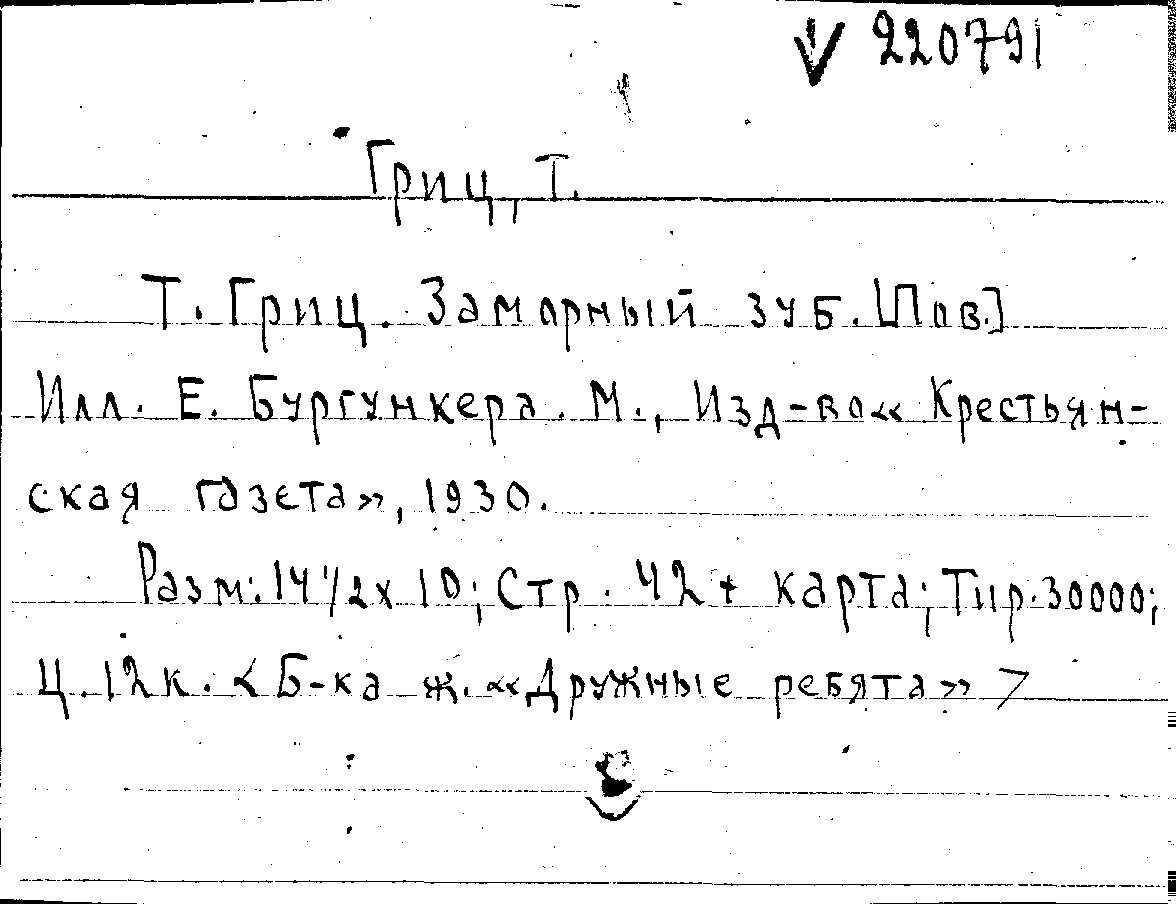 V 220791
Гриц, Т.
Т. Гриц. Заморный зуб. [Пов.]
Илл. Е. Бургункера. М., Изд-во «Крестьян-
ская газета», 1930.
Разм: 14 1/2 х 10; Стр. 42 + карта; Тир. 30000;
Ц. 12 к. <Б-ка ж. «Дружные ребята»>